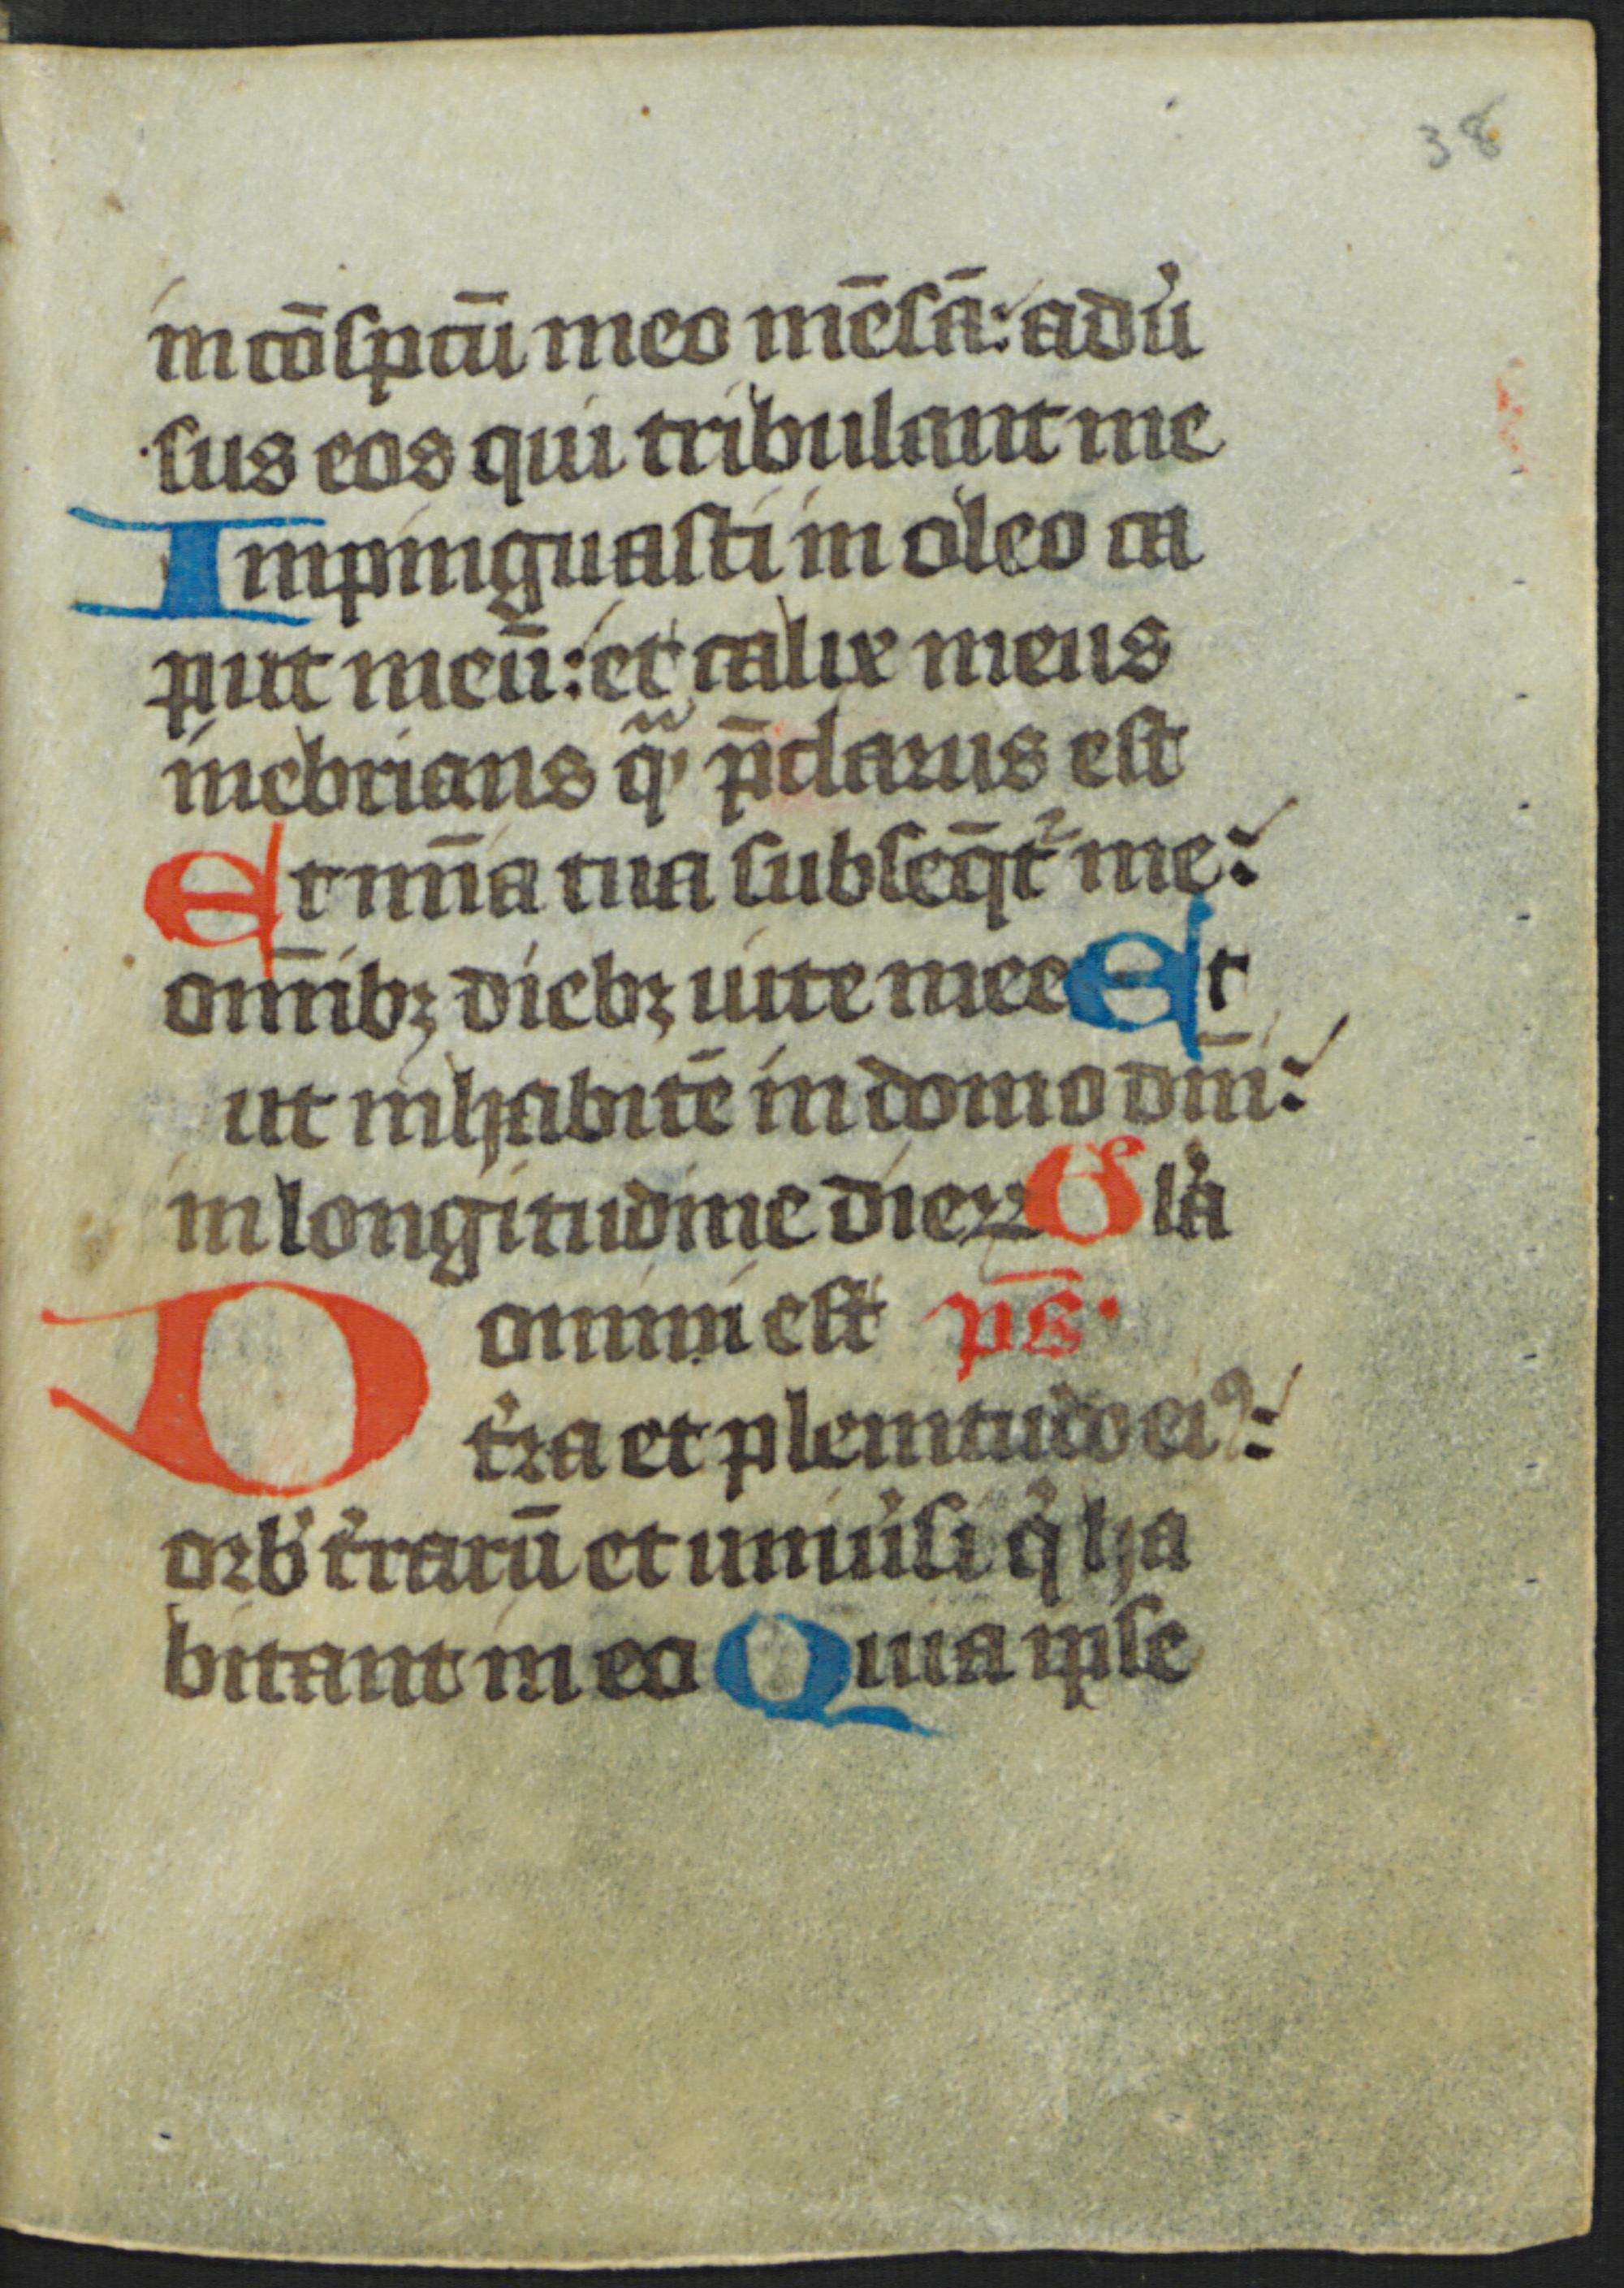 38
in cōspctū meo mēsā: adu̓
sus eos qui tribulant me
Impinguasti in oleo ca
put meū: et calix meus
inebrians qᷓ p̄clarus est
Et mīa tua subseq̄t᷑ me:
omībꝫ diebꝫ uite mee Et
ut inhabitē in domo dm̄i:
in longitudine dieꝝ Gla̓
Domini est p̄s.
tr̓ra et plenitudo eiꝰ:
orb̓ tr̓rarū et uniu̓si q̓ ha
bitant in eo Quia ipse